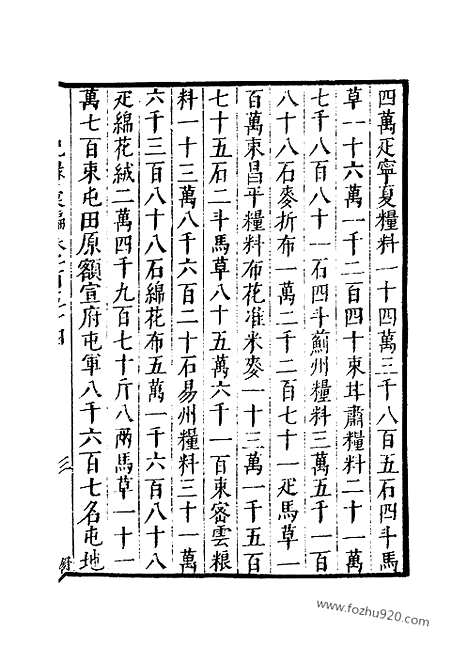 四萬疋寧夏糧料一十四萬三千八百五石四斗馬
草一十六萬一千二百四十束甘肅糧料二十一萬
七千八百八十一石四斗薊州糧料三萬五千一百
八十八石麥折布一萬二千二百七十一疋馬草一
百萬束昌平糧料布花准米麥一十三萬一千五百
七十五石二斗馬草八十五萬六千一百束密雲粮
料一十三萬八千六百二十石易州糧料三十一萬
六千三百八十八石綿花布五萬一千六百八十八
疋綿花絨二萬四千九百七十斤八兩馬草一十一
萬七百束屯田原額宣府屯軍八千六百七名屯地
紀錄彙編卷之一百四十四
三
www.fozhu920.com